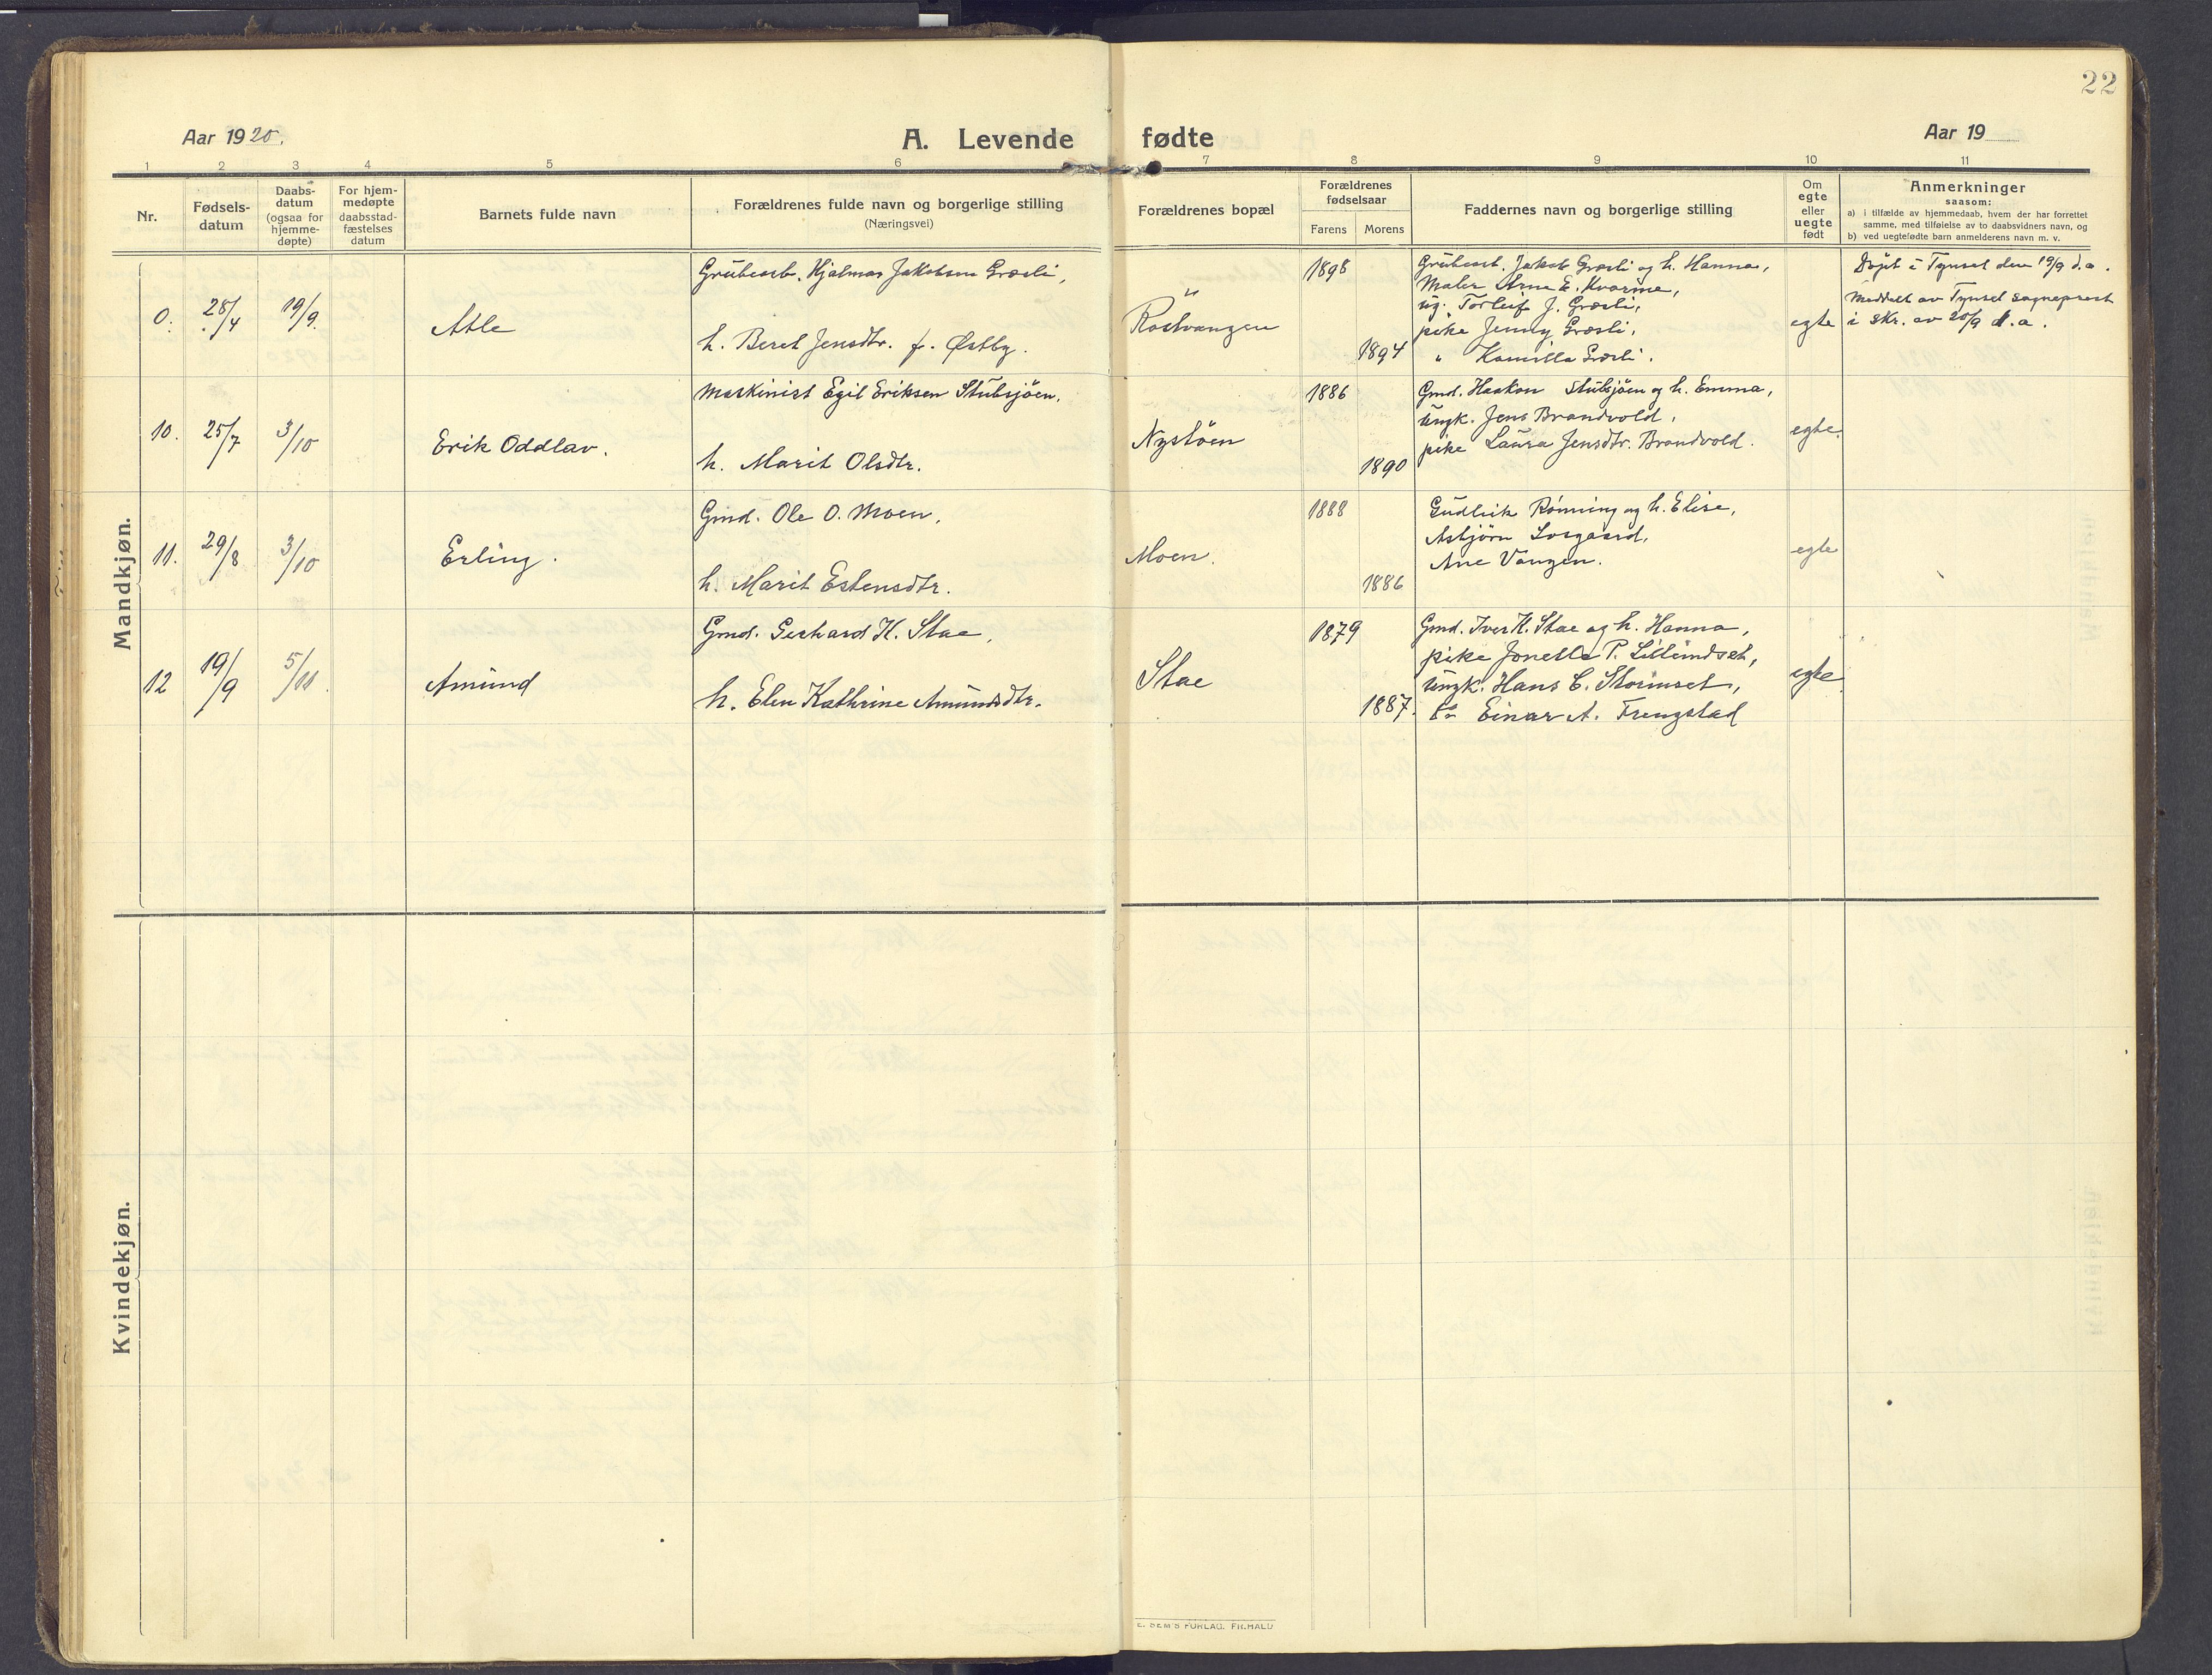 22
Aar 1920.
A. Levende fødte
Aar 19
1 2 3 4 5 6 7 8 9 10 11
Nr.
Fødsels-
datum
Daabs-
datum
(ogsaa for
hjemme-
døpte)
For hjem-
medøpte
daabsstad-
fæstelses
datum
Barnets fulde navn
Forældrenes fulde navn og borgerlige stilling
(Næringsvei)
Forældrenes bopæl
Forældrenes
fødselsaar
Farens Morens
Faddernes navn og borgerlige stilling
Om
egte
eller
uegte
født
Anmerkninger
saasom:
a) i tilfælde av hjemmedaab, hvem der har forrettet
samme, med tilføielse av to daabsvidners navn, og
b) ved uegtefødte barn anmelderens navn m. v.
Mandkjøn.
0. 28/4 19/9.
Atle
Grubearb. Hjalmar Jakobsen Græsli,
h. Beret Jensdtr. f. Østby.
Röstvangen
1898
1894
Grubearb. Jakob Græsli og h. Hanna,
Maler Arne E. Kvarme,
ug. Torleif J. Græsli,
pike Jenny Græsli,
" Kamilla Græsli.
egte
Døpt i Tynset den 19/9 d.a.
Meddelt av Tynset sogneprest
i skr. av 20/9 d.a.
10. 25/7 3/10
Erik Oddlav.
Maskinist Egil Eriksen Stubsjöen.
h. Marit Olsdtr.
Nystöen
1886
1890
Gmd. Haakon Stubsjöen og h. Emma,
ungk. Jens Brandvold,
pike Laura Jensdtr. Brandvold.
egte.
11. 29/8 3/10
Erling.
Gmd. Ole O. Moen,
h. Marit Estensdtr.
Moen.
1888
1886
Gudleik Rönning og h. Elise,
Asbjörn Losgaard,
Ane Vangen.
egte
12 19/9 5/11.
Amund
Gmd. Gerhard K. Stae,
h. Elen Kathrine Amundsdtr.
Stae
1879
1887.
Gmd. Iver K. Stae og h. Hanna,
pike Jonetta P. Lillimdset,
ungk. Hans C. Stormset,
do Einar A. Frengstad
egte
Kvindekjøn.
E. SEM'S FORLAG. FR.HALD